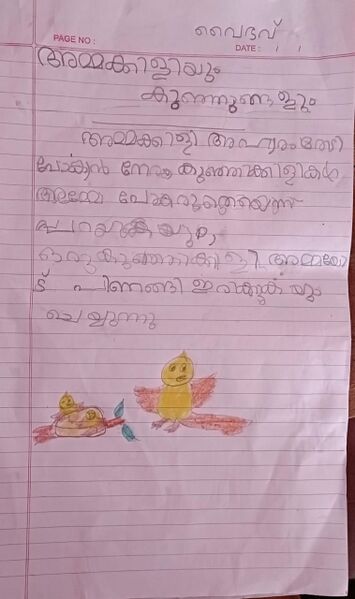 വൈദവ്
PAGE NO :
DATE : / /
അമ്മക്കിളിയും
കുഞ്ഞുങ്ങളും
അമ്മക്കിളി ആഹാരം തേടി
പോകാൻ നേരം കുഞ്ഞിക്കിളികൾ
അമ്മേ പോകരുതെയെന്ന്
പറയുകയും,
ഒരു കുഞ്ഞിക്കിളി അമ്മയോ
ട് പിണങ്ങി ഇരിക്കുക യും
ചെയ്യുന്നു